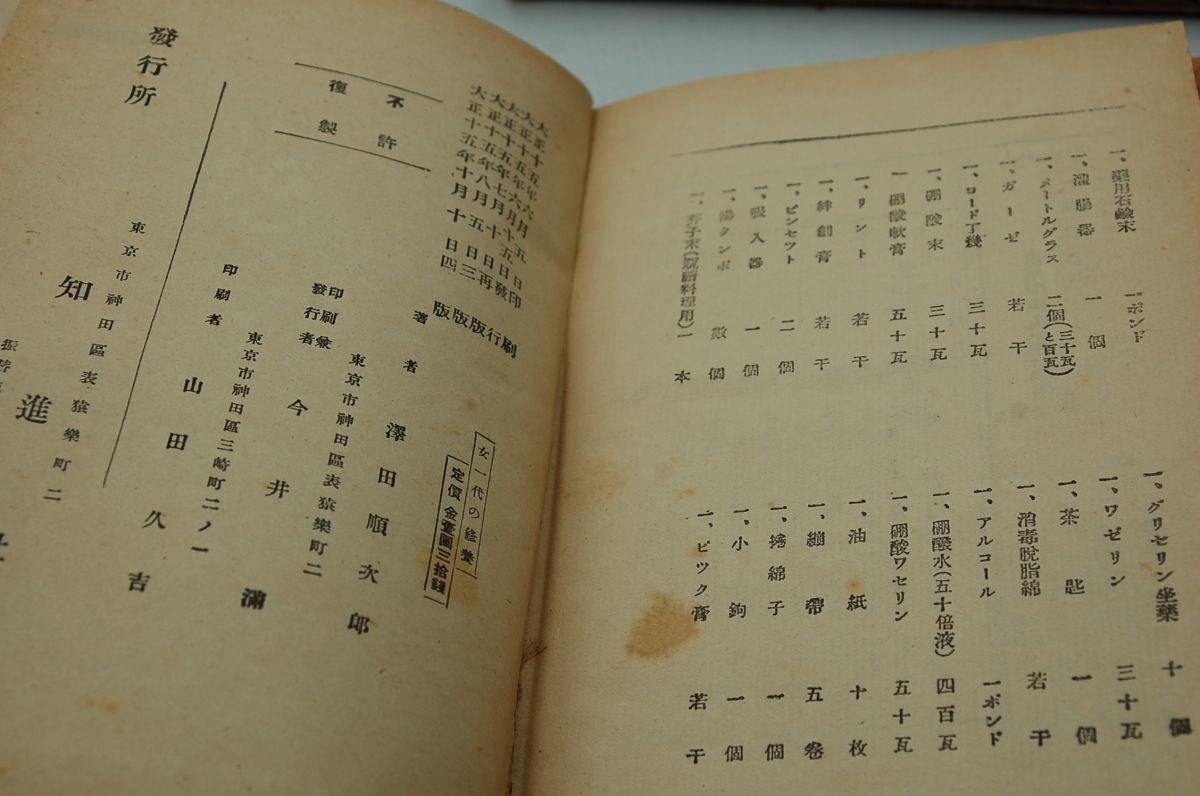 一、藥用石鹸末 一ポンド
一、灌腸器 一個
一、メートルグラス 二個(三十瓦と百瓦)
一、ガーゼ 若干
一、ヨード丁幾 三十瓦
一、硼酸末 三十瓦
一、硼酸軟膏 五十瓦
一、リント 若干
一、絆創膏 若干
一、ピンセット 二個
一、吸入器 一個
一、湯タンポ 數個
一、芥子末(瓶詰料理用) 一本
一、グリセリン坐藥 十個
一、ワゼリン 三十瓦
一、茶匙 一個
一、消毒脱脂綿 若干
一、アルコール 一ポンド
一、硼酸水(五十倍液) 四百瓦
一、硼酸ワセリン 五十瓦
一、油紙 十枚
一、繃帶 五卷
一、捲綿子 一個
一、小鉤 一個
一、ピック膏 若干
大正十五年六月五日印刷
大正十五年六月十日發行
大正十五年七月十五日再版
大正十五年八月五日三版
大正十五年十月十日四版
不許
復製
女一代の修養
定價金壹圓三拾錢
著者 澤田順次郎
東京市神田區表猿樂町二
印刷兼發行者 今井 滿
東京市神田區三崎町二ノ一
印刷者 山田久吉
發行所
東京市神田區表猿樂町二
知進
振替